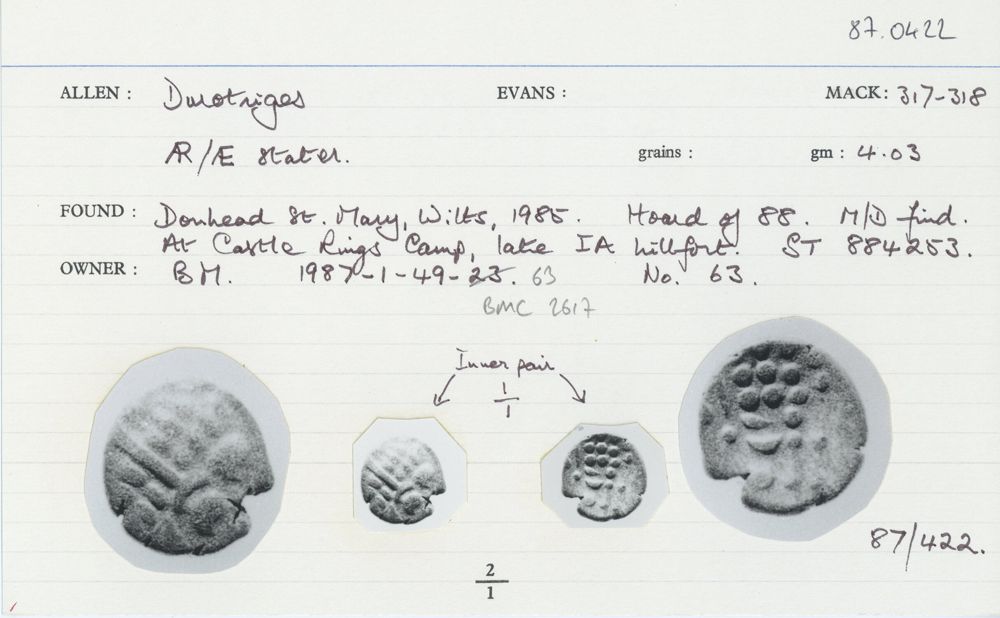 87.0422
ALLEN : Durotriges EVANS : MACK: 317-318
ÆR/Æ Stater. grains : gm : 4.03
FOUND : Donhead St. Mary, Wilts, 1985. Hoard of 88. M/D find.
At Castle Rings Camp, late IA hillfort. ST 884253.
OWNER : BM. 1987-1-49-23. 63 No. 63.
BMC 2617
Inner pair
1
1
87/422.
2
1